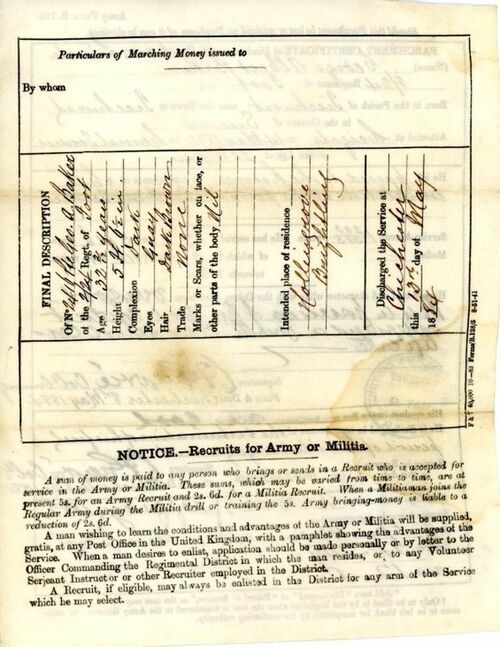 Particulars of Marching Money issued to
By whom
FINAL DESCRIPTION
Of No 2411 Geo. A. Baker
of the 2/24 Regt. of Foot
Age 32 4/12 years
Height 5 ft 6 in
Complexion Dark
Eyes Gray
Hair Dark Brown
Trade None
Marks or Scars, whether on face, or
other parts of the body Nil
Intended place of residence
Hollingrove
Brightling
Discharged the Service at
Chichester
this 13th day of May
1884
F & T 40,000 10—83 Forms/B.128/6 3-81-41
NOTICE.—Recruits for Army or Militia.
A sum of money is paid to any person who brings or sends in a Recruit who is accepted for
service in the Army or Militia. These sums, which may be varied from time to time, are at
present 5s. for an Army Recruit and 2s. 6d. for a Militia Recruit. When a Militiaman joins the
Regular Army during the Militia drill or training the 5s. Army bringing-money is liable to a
reduction of 2s. 6d.
A man wishing to learn the conditions and advantages of the Army or Militia will be supplied,
gratis, at any Post Office in the United Kingdom, with a pamphlet showing the advantages of the
Service. When a man desires to enlist, application should be made personally or by letter to the
Officer Commanding the Regimental District in which the man resides, or to any Volunteer
Serjeant Instructor or other Recruiter employed in the District.
A Recruit, if eligible, may always be enlisted in the District for any arm of the Service
which he may select.